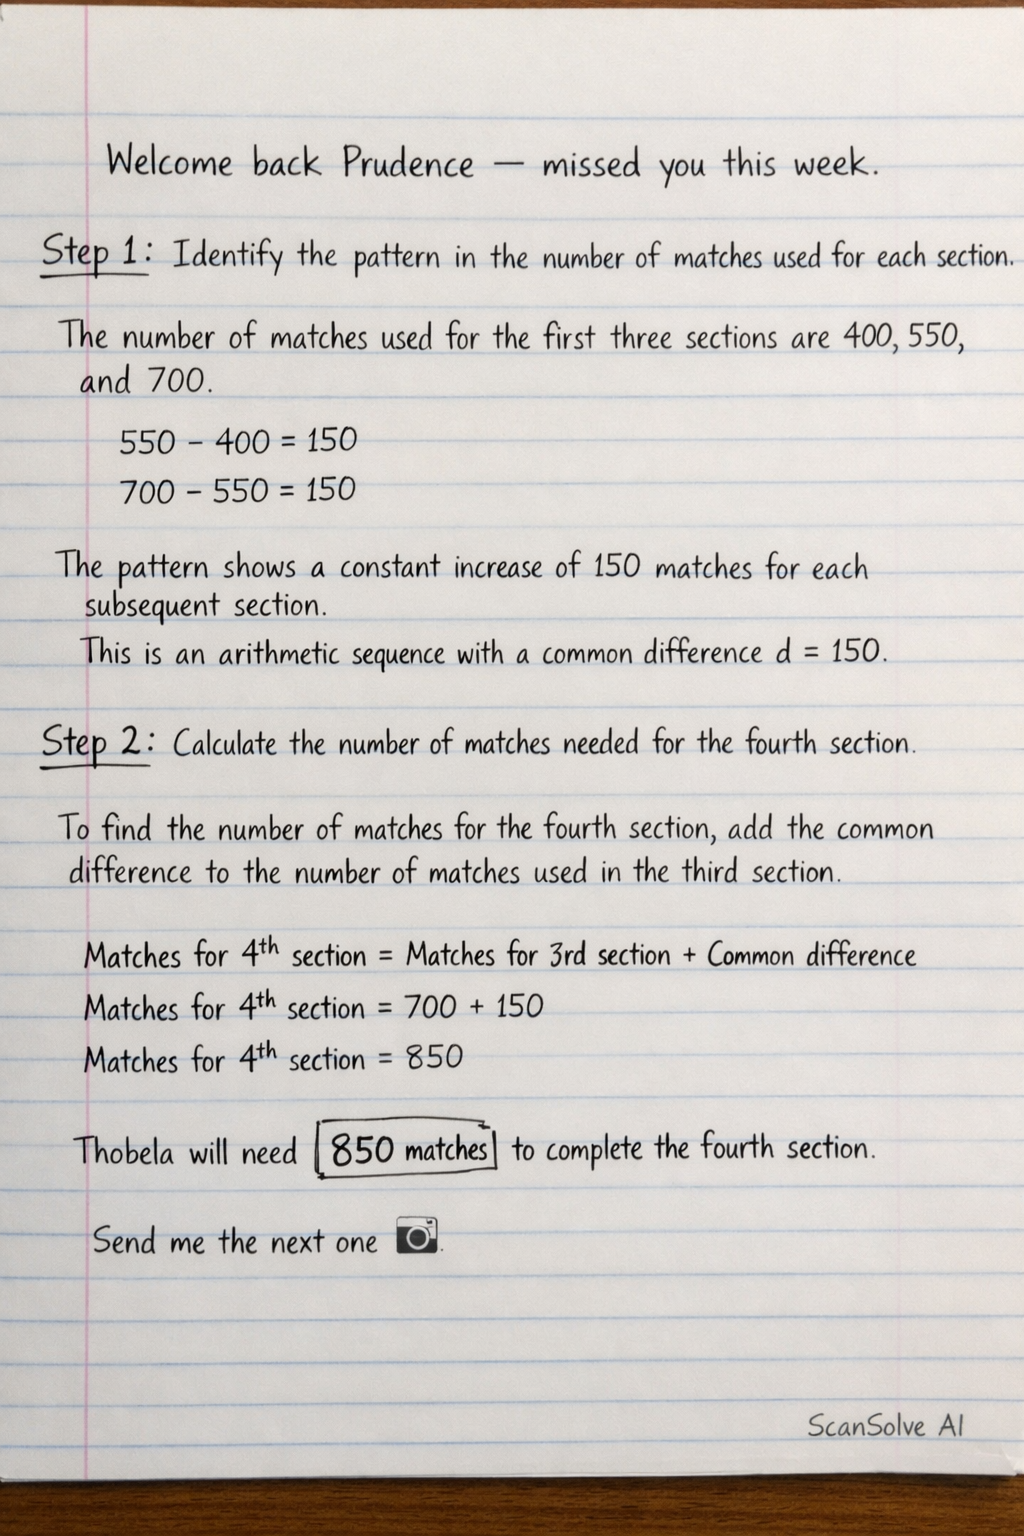 Welcome back Prudence — missed you this week.
Step 1: Identify the pattern in the number of matches used for each section.
The number of matches used for the first three sections are 400, 550,
and 700.
550 - 400 = 150
700 - 550 = 150
The pattern shows a constant increase of 150 matches for each
subsequent section.
This is an arithmetic sequence with a common difference d = 150.
Step 2: Calculate the number of matches needed for the fourth section.
To find the number of matches for the fourth section, add the common
difference to the number of matches used in the third section.
Matches for 4th section = Matches for 3rd section + Common difference
Matches for 4th section = 700 + 150
Matches for 4th section = 850
Thobela will need 850 matches to complete the fourth section.
Send me the next one 📷.
ScanSolve AI